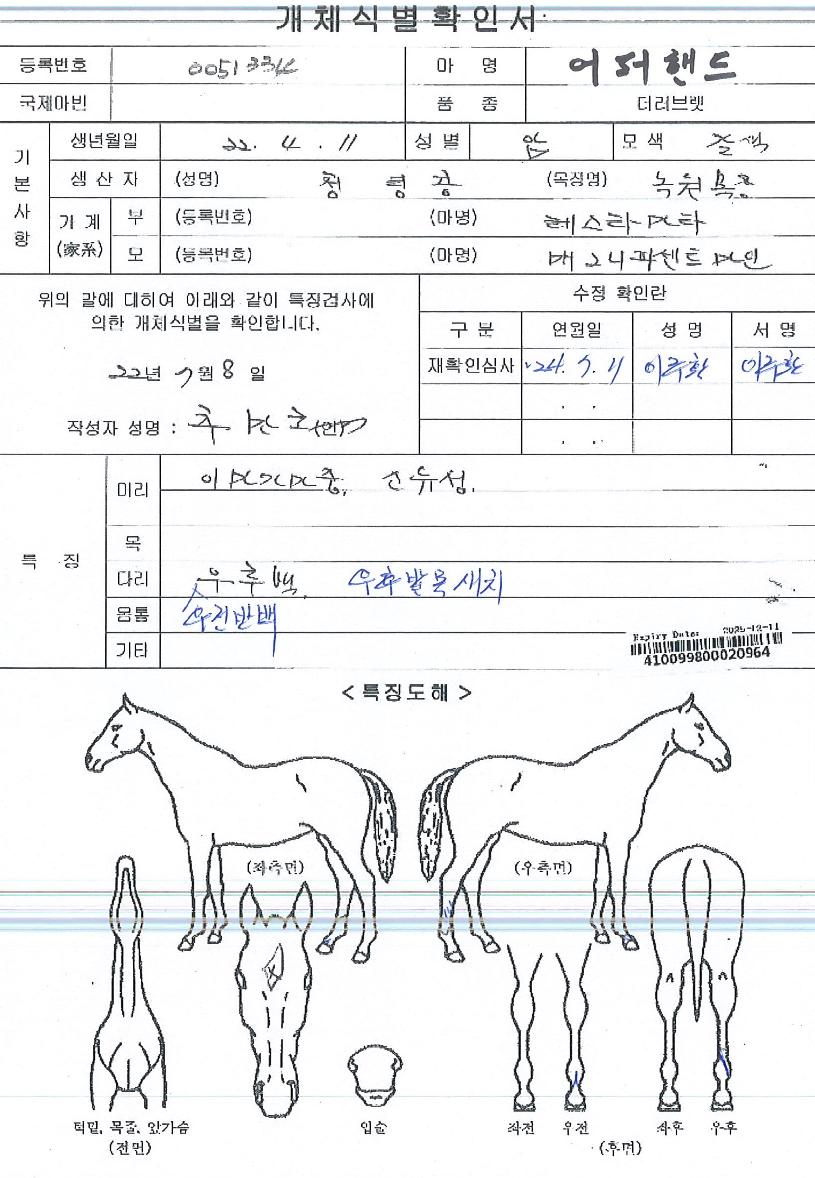 개체식별확인서
등록번호 0051334 마 명 어더핸드
국제마빈 품 종 더러브렛
기본사항
생년월일 22. 4. 11 성 별 암 모 색 갈색
생 산 자 (성명) (목장명) 녹원목장
가 계 (家系) 부 (등록번호) (마명) 테스타마타
모 (등록번호) (마명)
위의 말에 대하여 아래와 같이 특징검사에
의한 개체식별을 확인합니다.
22년 7월 8 일
작성자 성명 :
수정 확인란
구 분 연월일 성 명 서 명
재확인심사 '24. 7. 11 이주환 이주환
. .
. .
특 징
머리
목
다리 우후백, 우후발목새치
몸통 우전반백
기타
Expiry Date: 2025-12-11
410099800020964
< 특징도해 >
(좌측면) (우측면)
턱밑, 목줄, 앞가슴 입술 좌전 우전 좌후 우후
(전면) (후면)